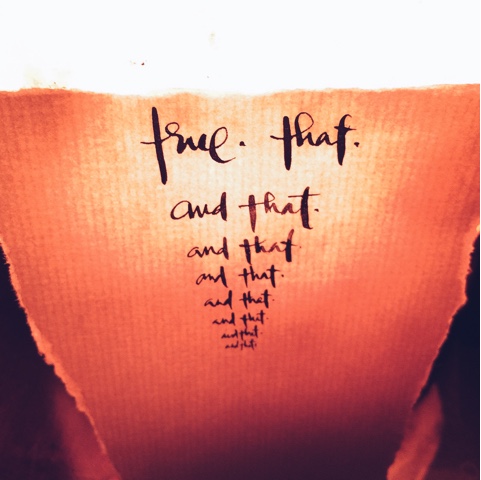 true. that.
and that.
and that.
and that.
and that.
and that.
and that.
and that.